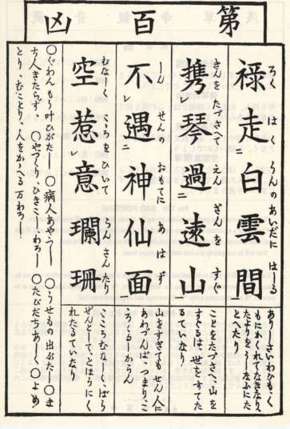 第百凶
禄走白雲間
ろくはくうんのあいだにはしる
ありしさいわひもく
もにかくれてなきなり、
たよりをうしなふにた
とへたり
携琴過遠山
きんをたづさてえんざんをすぐ
ことをたづさへ、山を
すぐるは、世をすてた
るていなり
不遇神仙面
しんせんのおもてにあはず
山をすぎてもせん人に
あわづんば、つまり、こ
ゝろくるしからん
空惹意瓓珊
むなしくこゝろをひいてらんさんたり
こゝろむなしく、ばう
ぜんとしてとほうにく
れたるていなり
〇ぐわんもう叶ひがたし 〇病人あやうし 〇うせもの出がたし 〇ま
ち人きたらず、〇やづくり、ひきこしわろし 〇たびだちあし 〇よめ
とり、むことり、人をかゝへる万わろし